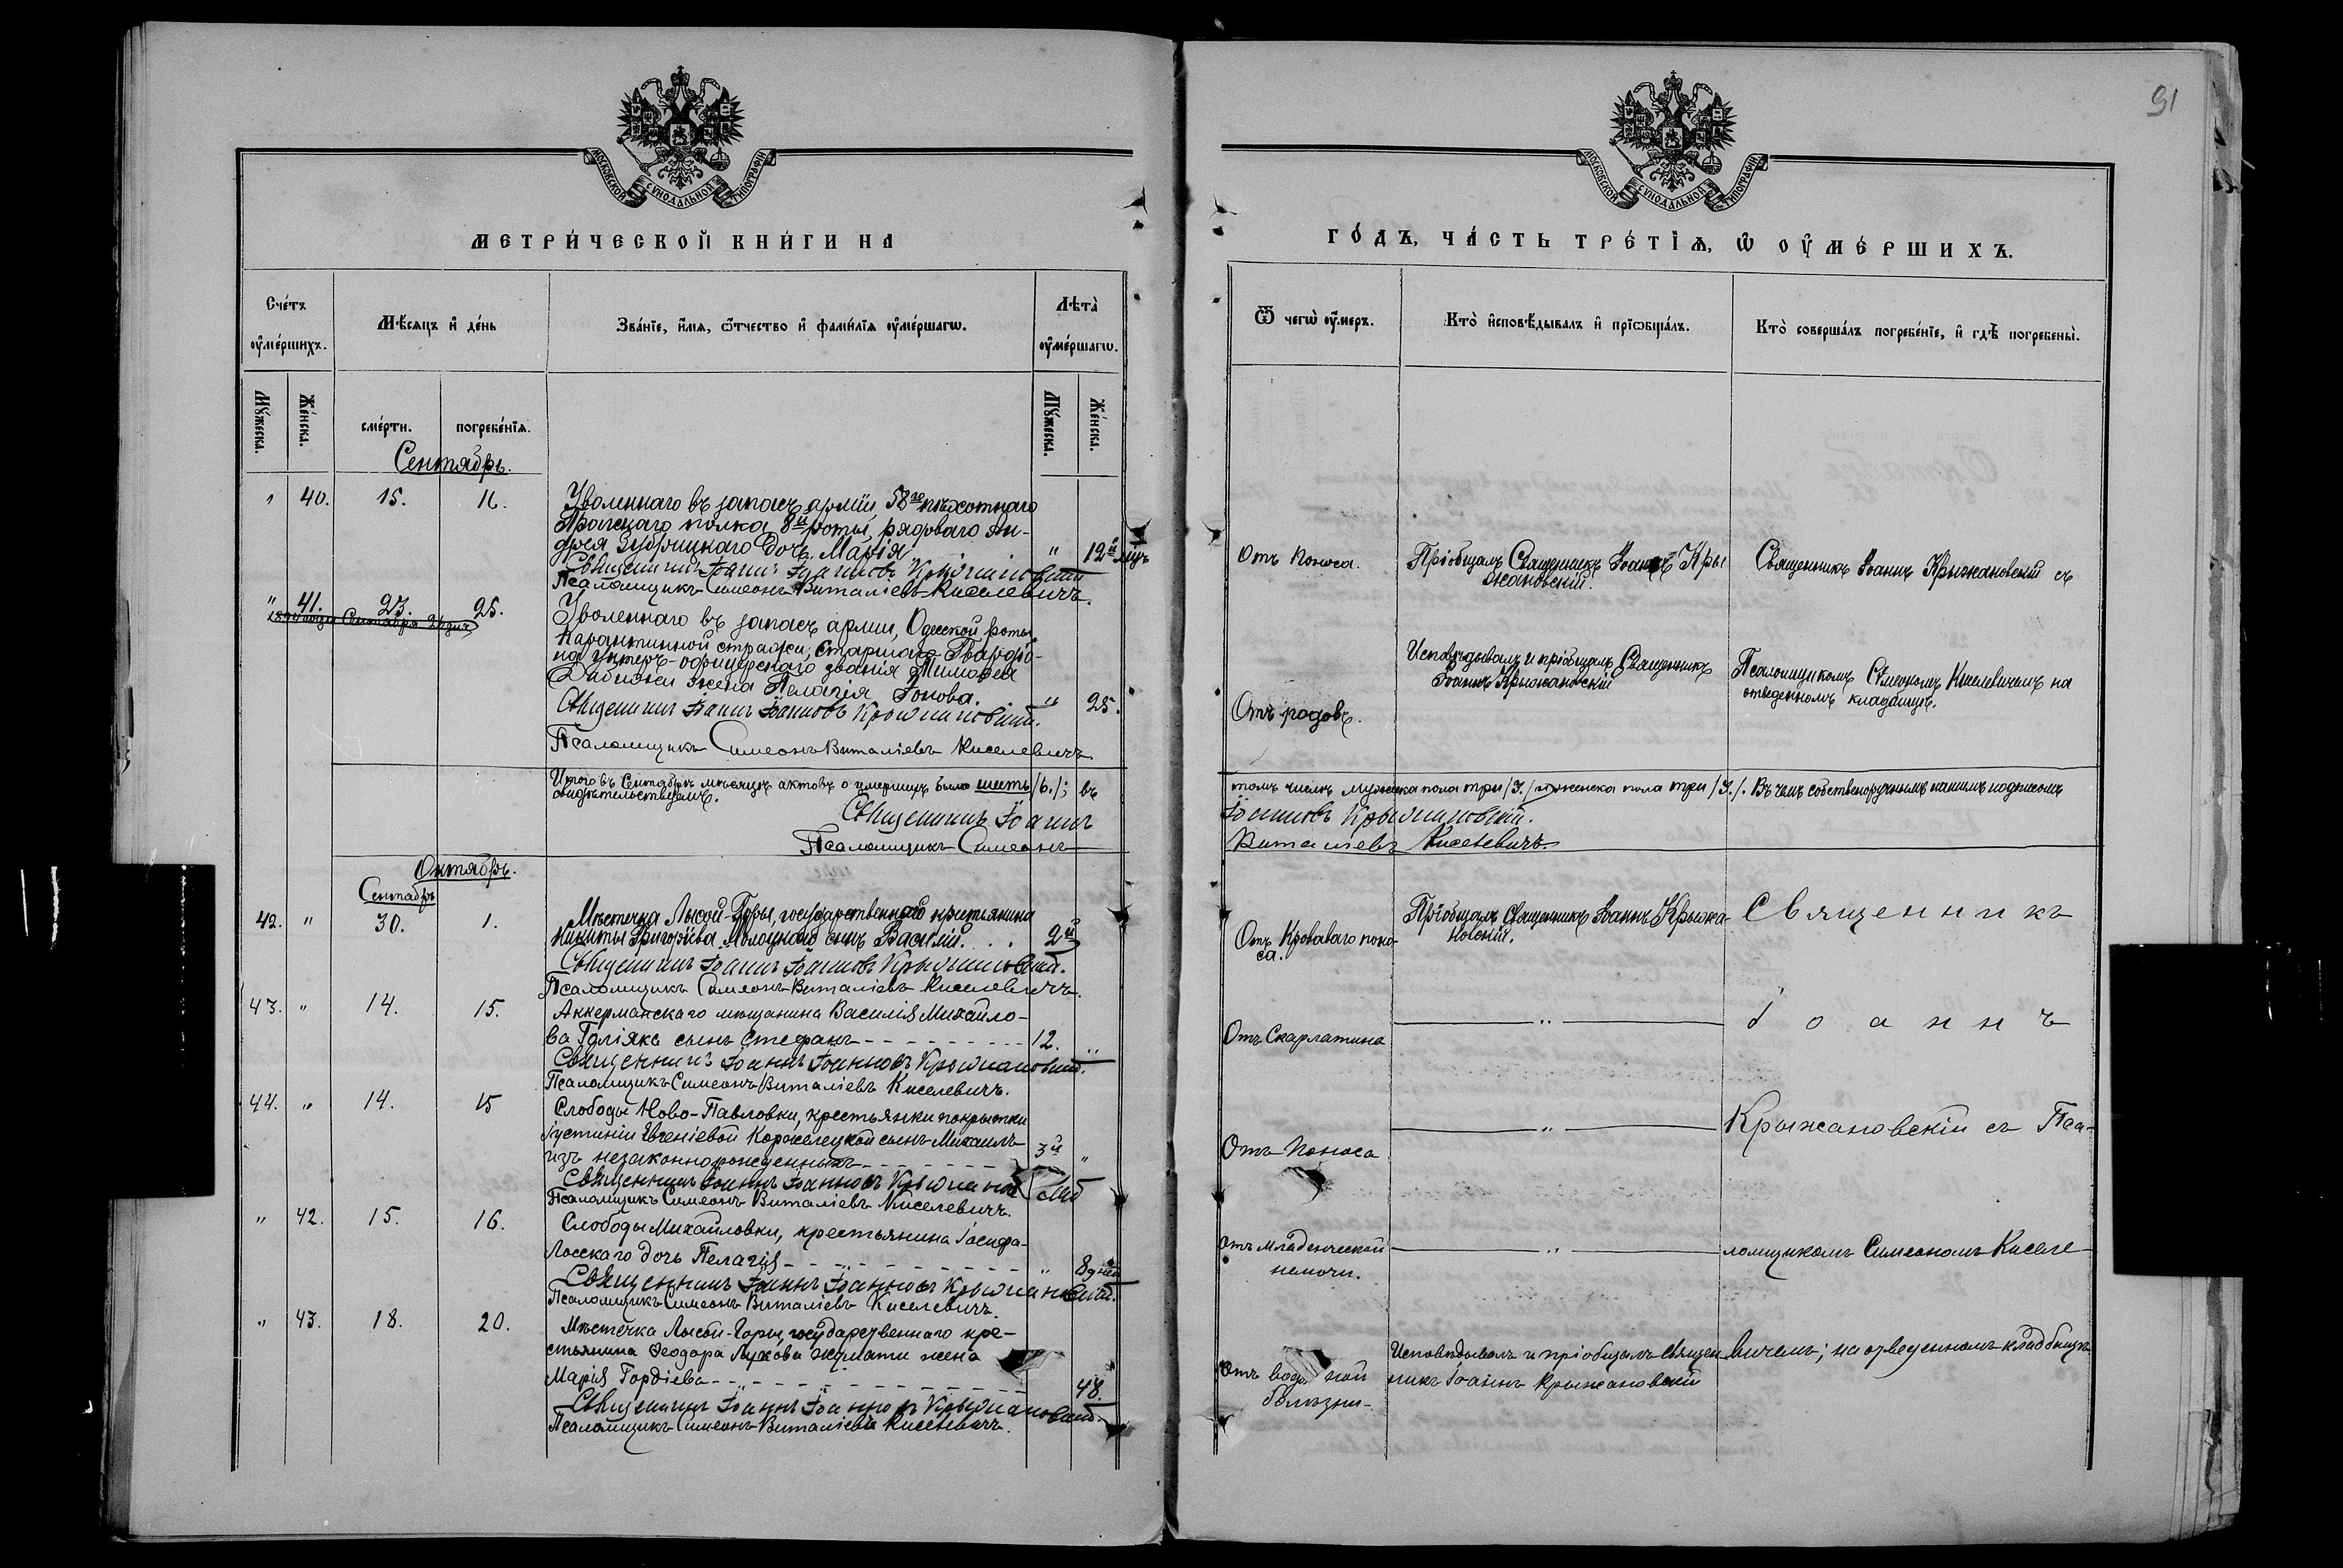 91
МОСКОВСКОЙ СѴНОДАЛЬНОЙ ТИПОГРАФІИ
МЕТРИ́ЧЕСКОЙ КНИ́ГИ НА
Сче́тъ ᲂу҆ме́ршихъ.
Мѣ́сяцъ и҆ де́нь
Зва́нїе, и҆́мѧ, ѻ҆́тчество и҆ фамі́лїѧ ᲂу҆ме́ршагѡ.
Лѣта̀ ᲂу҆ме́ршагѡ.
Мꙋ́жеска.
Же́нска.
сме́рти.
погребе́нїѧ.
Мꙋ́жеска.
Же́нска.
Сентябрь.
" 40. 15. 16.
Уволеннаго въ запасъ арміи, 58го пѣхотнаго
Прагскаго полка, 8й роты, рядоваго Ан-
дрея Зубрицкаго дочь Марія " 12й мѣц
Священникъ Іоаннъ Іоанновъ Крыжановскій
Псаломщикъ Симеонъ Виталіевъ Киселевичъ.
" 41. 23. 25.
Уволеннаго въ запасъ арміи, Одесской роты
карантинной стражи, старшаго
унтеръ-офицерскаго званія Тимофея
жена Пелагія Іонова. " 25.
Священникъ Іоаннъ Іоанновъ Крыжановскій.
Псаломщикъ Симеонъ Виталіевъ Киселевичъ
Итого въ Сентябрѣ мѣсяцѣ актовъ о умершихъ было шесть /6./; въ
свидѣтельствуемъ.
Священникъ Іоаннъ
Псаломщикъ Симеонъ
Октябрь.
Сентябрь
42. " 30. 1.
Мѣстечка Лысой-Горы, государственнаго крестьянина
Никиты Григоріева Молоцкаго сынъ Василій. . . 2й
Священникъ Іоаннъ Іоанновъ Крыжановскій.
Псаломщикъ Симеонъ Виталіевъ Киселевичъ.
43. " 14. 15.
Аккерманскаго мѣщанина Василія Михайло-
ва Голіяка сынъ Стефанъ 12. "
Священникъ Іоаннъ Іоанновъ Крыжановскій.
Псаломщикъ Симеонъ Виталіевъ Киселевичъ.
44. " 14. 15
Слободы Ново-Павловки, крестьянки покрытки
Іустиніи Евгеніевой Коржелецкой сынъ Михаилъ
изъ незаконнорожденныхъ 3й "
Священникъ Іоаннъ Іоанновъ
Псаломщикъ Симеонъ Виталіевъ Киселевичъ.
" 42. 15. 16.
Слободы Михайловки, крестьянина Іосифа
Лосскаго дочь Пелагія " 8 дней
Священникъ Іоаннъ Іоанновъ Крыжановскій.
Псаломщикъ Симеонъ Виталіевъ Киселевичъ
" 43. 18. 20.
Мѣстечка Лысой-Горы, государственнаго кре-
стьянина Ѳеодора Лукова жена
Марія Гордіева 48.
Священникъ Іоаннъ Іоанновъ Крыжановскій.
Псаломщикъ Симеонъ Виталіевъ Киселевичъ.
МОСКОВСКОЙ СѴНОДАЛЬНОЙ ТИПОГРАФІИ
ГО́ДЪ, ЧА́СТЬ ТРЕ́ТЇѦ, Ѡ҆ ОУ҆МЕ́РШИХЪ.
Ѿ чегѡ̀ ᲂу҆́меръ.
Кто̀ и҆сповѣ́дывалъ и҆ прїѡбща́лъ.
Кто̀ соверша́лъ погребе́нїе, и҆ гдѣ̀ погребены̀.
Отъ поноса.
Пріобщалъ Священникъ Іоаннъ Кры
жановскій.
Священникъ Іоаннъ Крыжановскій съ
Отъ родовъ.
Исповѣдывалъ и пріобщалъ Священникъ
Іоаннъ Крыжановскій
Псаломщикомъ Симеономъ Киселевичемъ на
отведенномъ кладбищѣ.
томъ числѣ мужеска пола три /3./ и женска пола три /3./. Въ чемъ собственоручнымъ нашимъ подписомъ
Іоанновъ Крыжановскій.
Виталіевъ Киселевичъ.
Отъ кроваваго поно-
са.
Пріобщалъ Священникъ Іоаннъ Крыжа-
новскій.
Священникъ
Отъ Скарлатина
"
Іоаннъ
Отъ поноса
"
Крыжановскій съ Пса-
Отъ младенческой
немочи.
"
ломщикомъ Симеономъ Киселе
Отъ
болѣзни
Исповѣдывалъ и пріобщалъ священ
никъ Іоаннъ Крыжановскій
вичемъ; на отведенномъ кладбищѣ